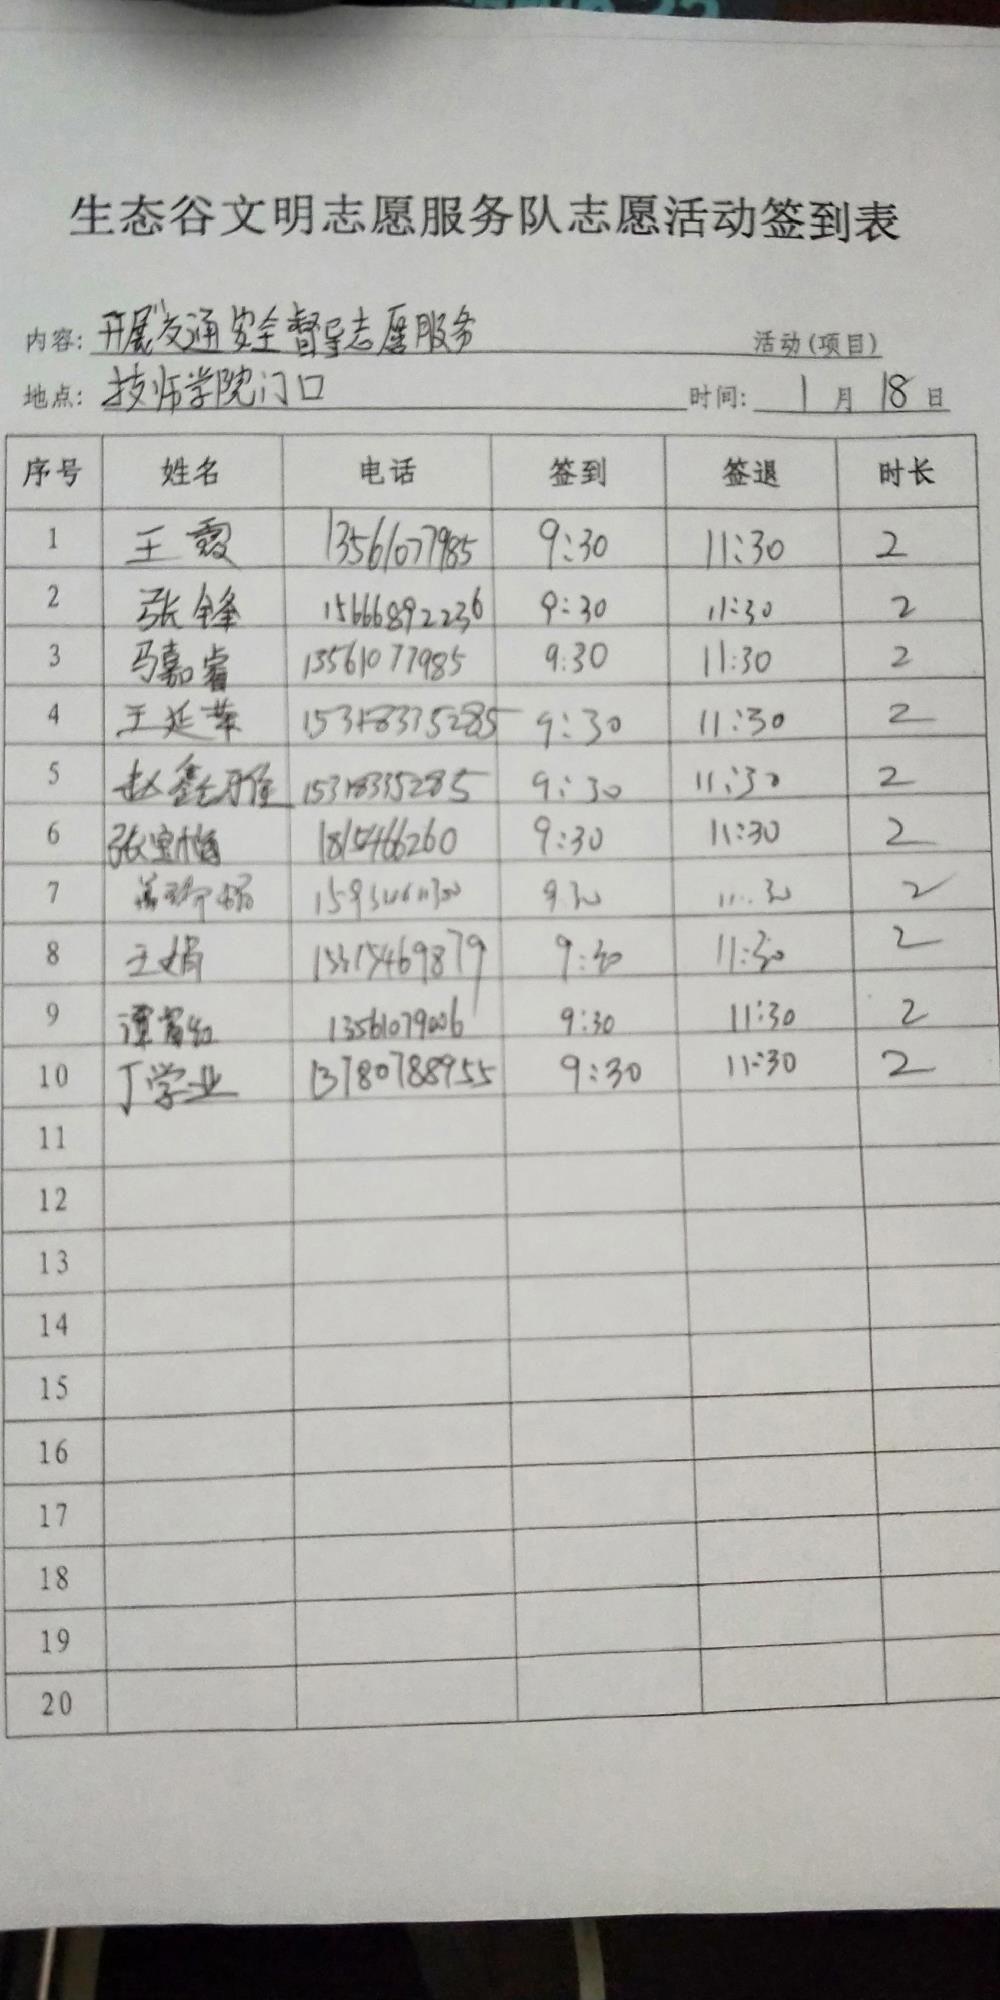 生态谷文明志愿服务队志愿活动签到表
内容: 开展交通安全督导志愿服务 活动(项目)
地点: 技师学院门口 时间: 1 月 18 日
序号 姓名 电话 签到 签退 时长
1 王霞 13561077985 9:30 11:30 2
2 张锋 15666892236 9:30 11:30 2
3 马嘉睿 13561077985 9:30 11:30 2
4 王延苹 15318335285 9:30 11:30 2
5 赵鑫 15318335285 9:30 11:30 2
6 张 9:30 11:30 2
7 9:30 11:30 2
8 王娟 9:30 11:30 2
9 谭 13561079006 9:30 11:30 2
10 丁学业 13780788955 9:30 11:30 2
11
12
13
14
15
16
17
18
19
20